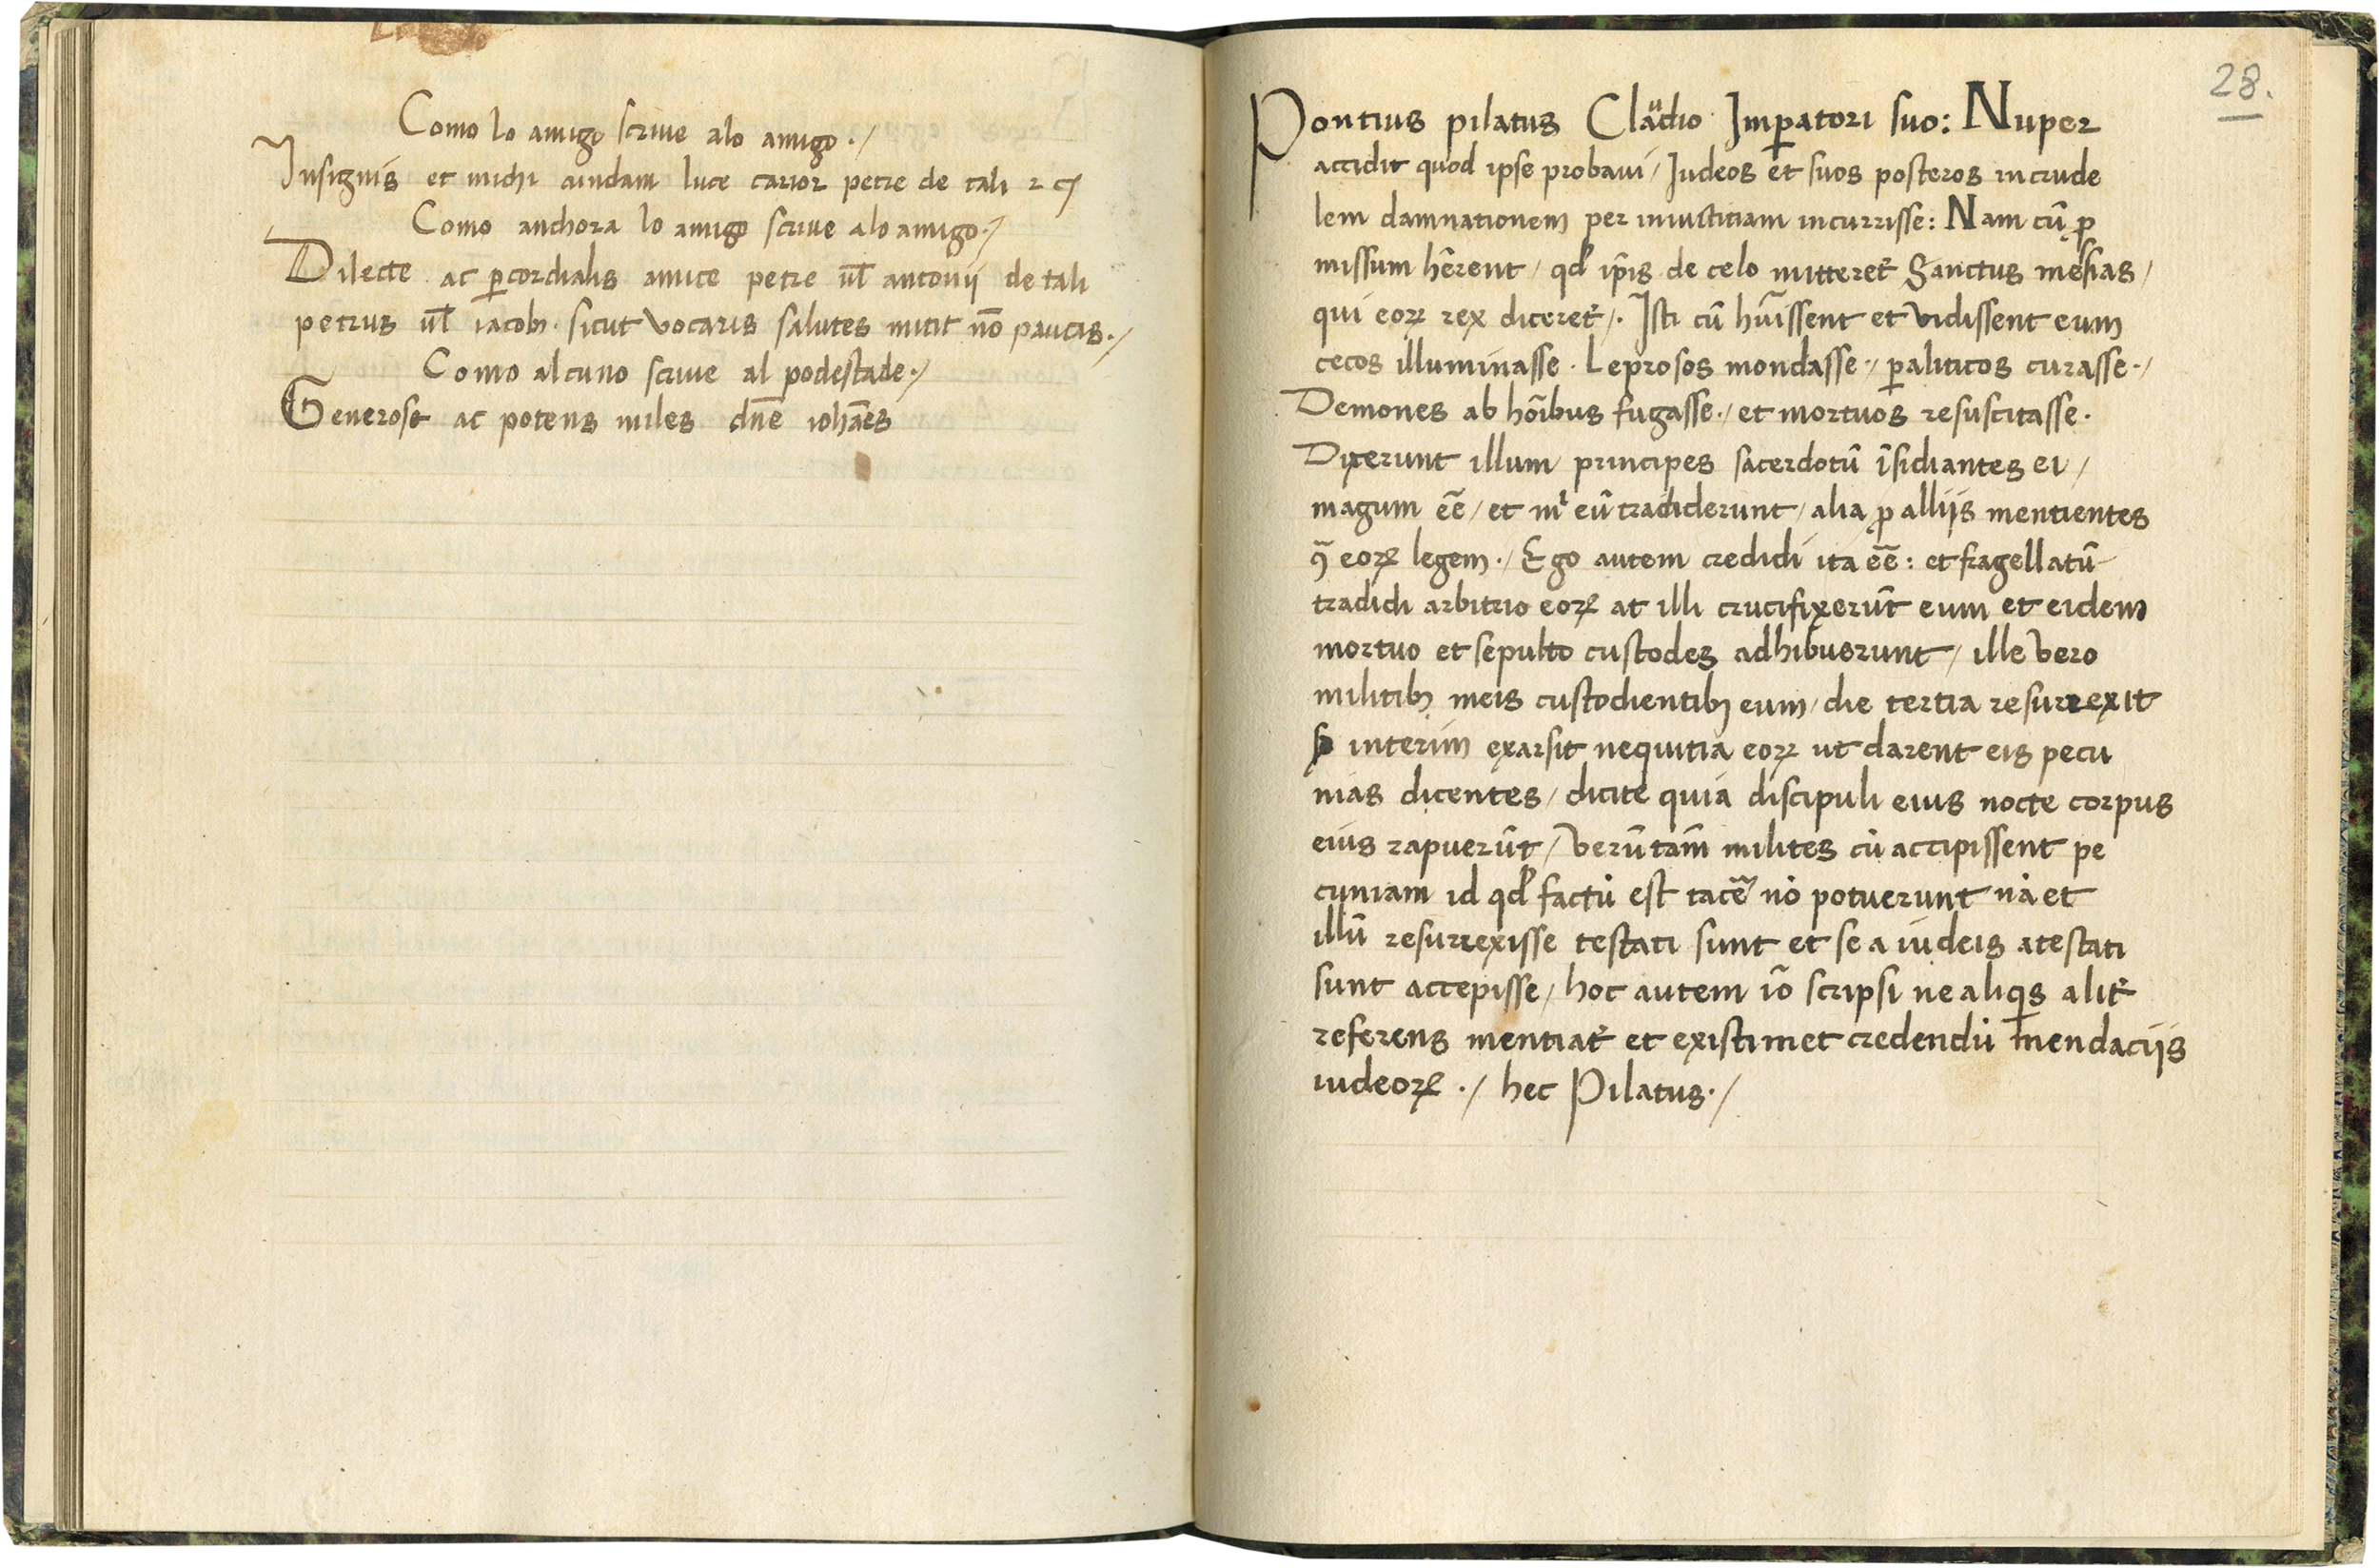 Como lo amigo scriue alo amigo ./
Insignis et michi quidam luce carior petre de tali ⁊ cꝫ
Como anchora lo amigo scriue alo amigo ./
Dilecte ac ꝑcordialis amice petre ul̄ antonij de tali
petrus ul̄ iacobꝫ . sicut vocaris salutes mitit nō paucas ./
Como alcuno scriue al podestade ./
Generose ac potens miles dn̄e ioha͞es
28.
Pontius pilatus Claudio Imꝑatori suo: Nuper
accidit quod ipse probaui / Iudeos et suos posteros in crude
lem damnationem per iniustitiam incurrisse : Nam cū ꝓ
missum hērent / qd' ip̄is de celo mitteret᷑ Sanctus messias /
qui eoꝝ rex diceret᷑ /. Isti cū hūissent et vidissent eum
cecos illuminasse . Leprosos mondasse ./ ꝑaliticos curasse ./
Demones ab hōibus fugasse ./ et mortuos resuscitasse .
Dixerunt illum principes sacerdotū īsidiantes ei /
magum eē / et mͥ eū tradiderunt / alia ꝓ allijs mentientes
ꝯ̄ eoꝝ legem ./ Ego autem credidi ita eē : et fragellatū
tradidi arbitrio eoꝝ at illi crucifixerūt eum et eidem
mortuo et sepulto custodes adhibuerunt / ille vero
militibꝫ meis custodientibꝫ eum / die tertia resurrexit
interim exarsit nequitia eoꝝ ut darent eis pecu
nias dicentes / dicite quia discipuli eius nocte corpus
eius rapuerūt / verūtam̄ milites cū accipissent pe
cuniam id qd' factū est tacē nō potuerunt nā et
illū resurrexisse testati sunt et se a iudeis atestati
sunt accepisse / hoc autem iō scripsi ne aliqͥs alit᷑
referens mentiat᷑ et existimet credendū mendacijs
iudeoꝝ ./ hec Pilatus ./